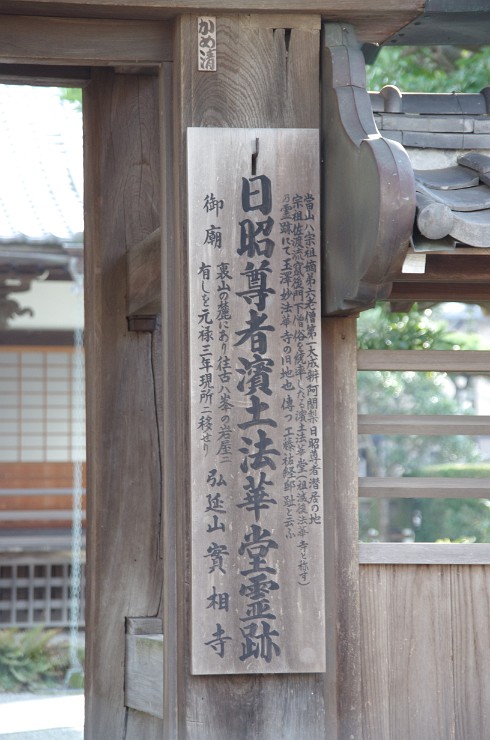 かめ清
當山ハ宗祖嫡弟六老僧第一大成辨阿闍梨日昭尊者濳居の地
宗祖佐渡流竄門下僧俗を統率したる濱土法華堂(祖滅後法華寺と称す)
の霊跡にて玉澤妙法華寺の旧地也 傳つ工藤祐経邸趾と云ふ
日昭尊者濱土法華堂霊跡
御廟
裏山の麓にあり往古ハ峯の岩屋ニ
有しを元禄三年現所ニ移せり
弘延山實相寺